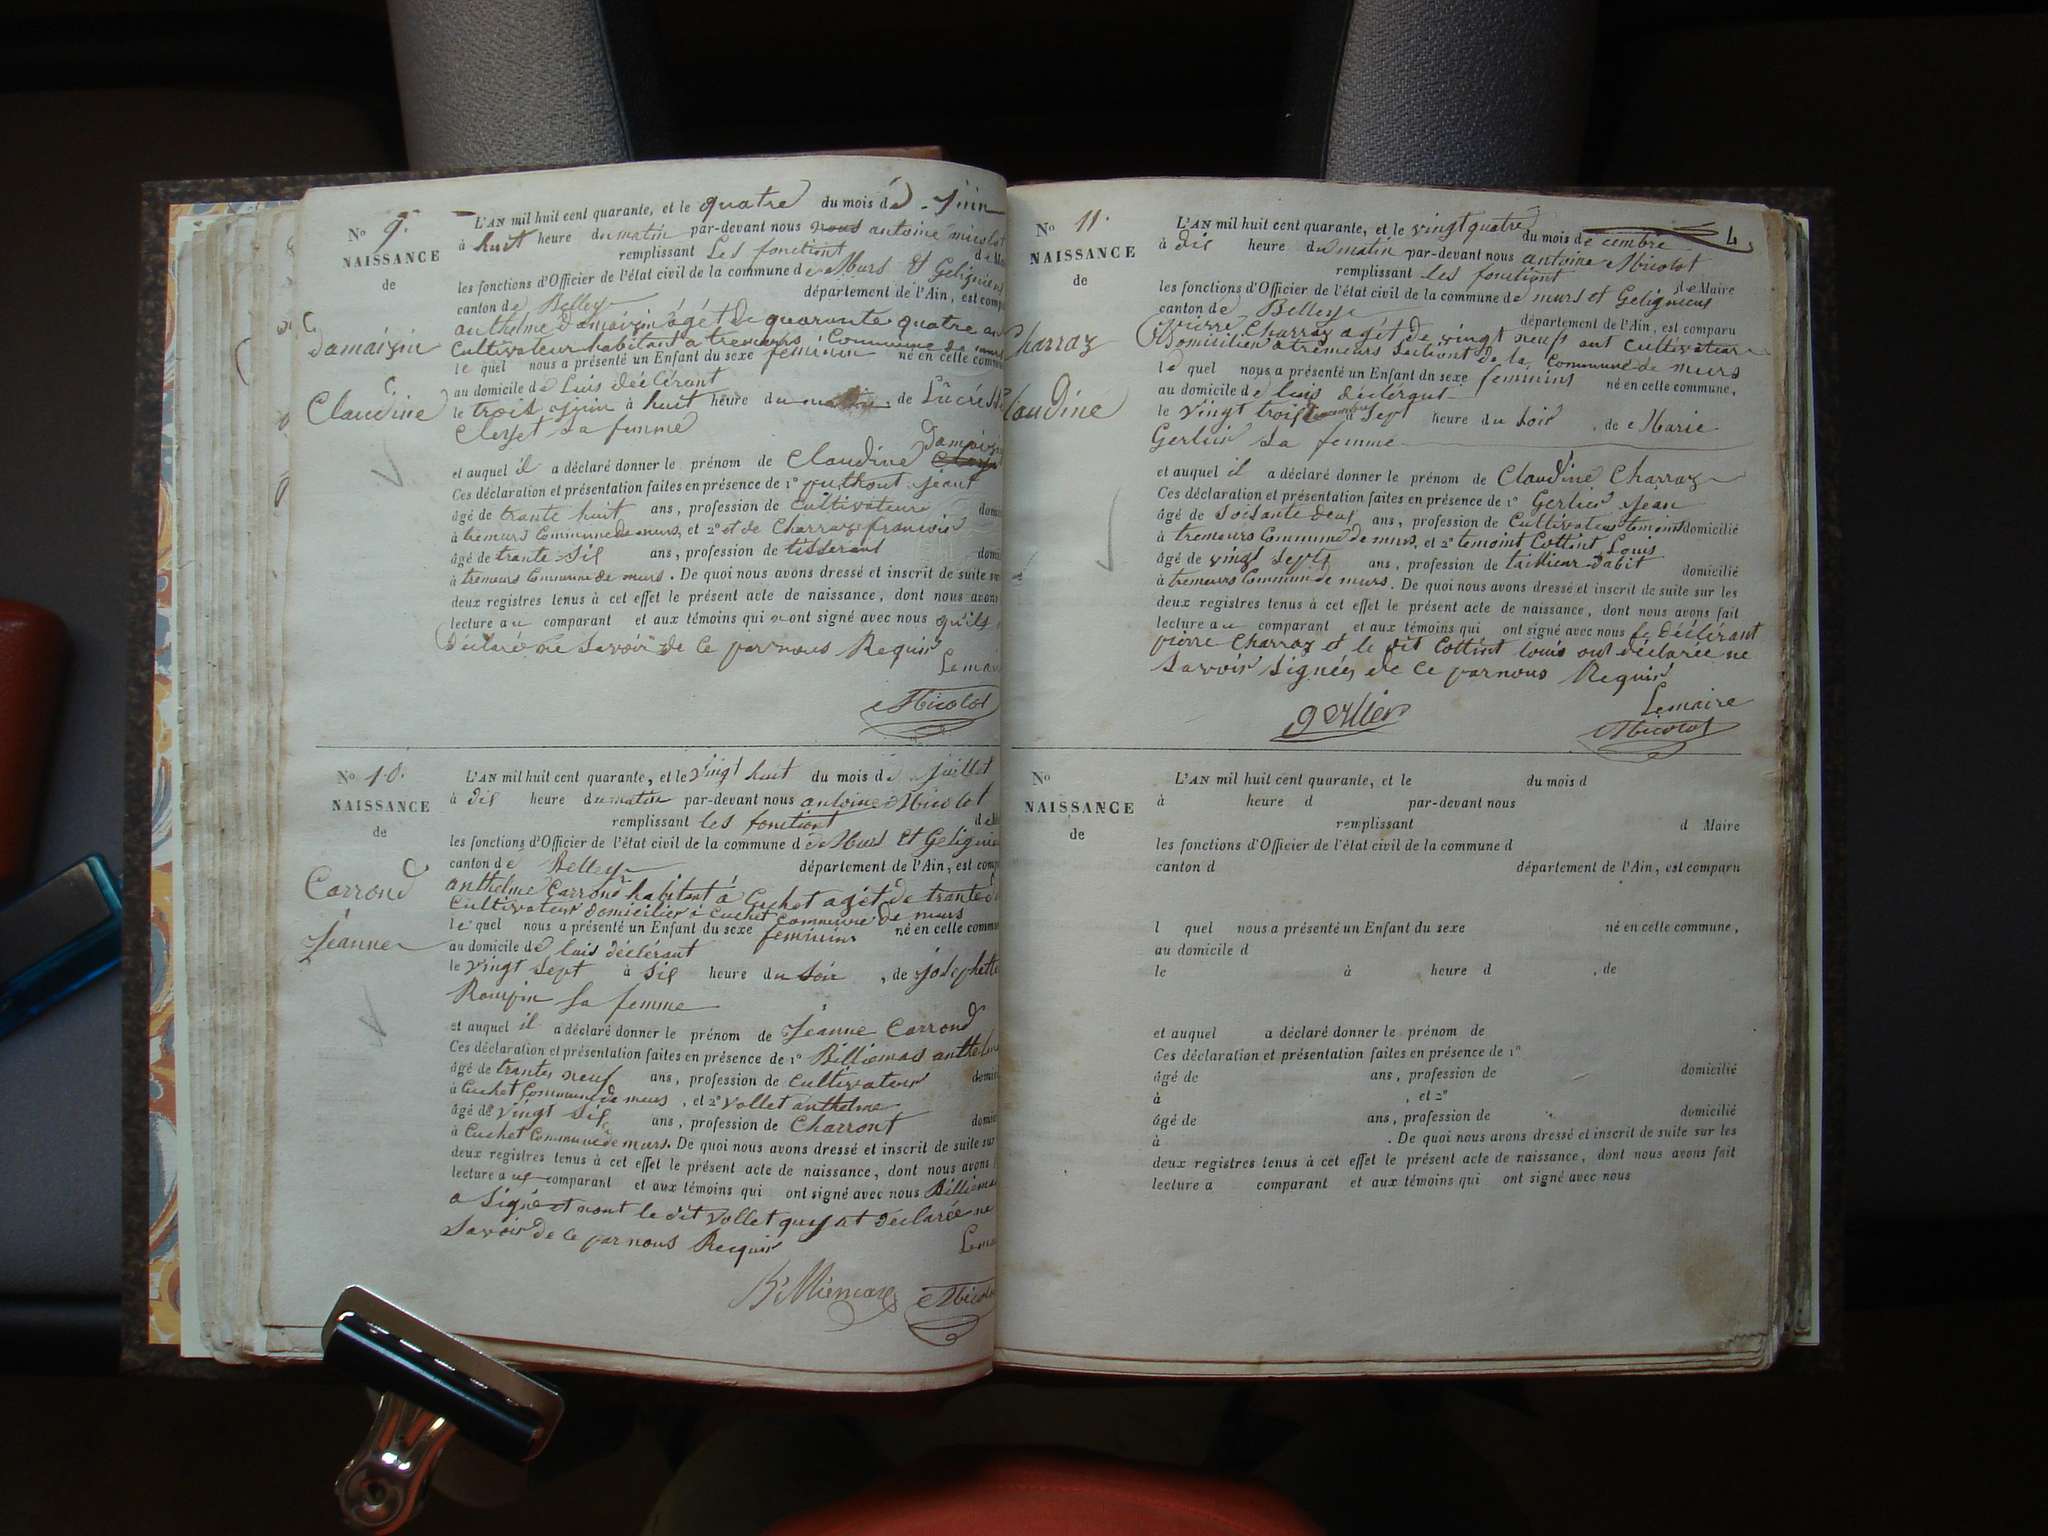 No 9.
NAISSANCE
de
Damaizin
Claudine
L'AN mil huit cent quarante, et le quatre du mois de Juin
à huit heure du matin par-devant nous nous antoine Micolot
remplissant Les fonctiont d
les fonctions d'Officier de l'état civil de la commune de Murs Et Geligniens
canton de Belley département de l'Ain, est comp
anthelme Damaizin agét de quarante quatre an
Cultivateur habitant a tremurs Commune de murs
le quel nous a présenté un Enfant du sexe feminin né en cette commu
au domicile de Luis décléront
le trois juin à huit heure du de Lucré
Cleyet Sa femme
et auquel il a déclaré donner le prénom de Claudine Damaizin
Ces déclaration et présentation faites en présence de 1º puthout jeant
âgé de trante huit ans, profession de Cultivateure domi
à tremurs Commune de murs, et 2º et de Charraz francois
âgé de trante Sil ans, profession de tisserant domi
à tremeurs Commune de murs. De quoi nous avons dressé et inscrit de suite sur
deux registres tenus à cet effet le présent acte de naissance, dont nous avons
lecture au comparant et aux témoins qui nont signé avec nous qu'ils
Déclaré ne Savoir de Ce par nous Requis
Lemair
Micolot
No 10.
NAISSANCE
de
Carrond
Jeanne
L'AN mil huit cent quarante, et le vingt huit du mois de Juillet
à dis heure du matin par-devant nous antoine Micolot
remplissant les fonctiont d
les fonctions d'Officier de l'état civil de la commune de Murs Et Geligniens
canton de Belley département de l'Ain, est comp
anthelme Carrond habitant à Cuchet agét de trante
Cultivateur domicilier à Cuchet Commune de murs
le quel nous a présenté un Enfant du sexe feminins né en cette commu
au domicile de luis déclérant
le vingt sept à sis heure du soir, de josephette
Rompin Sa femme
et auquel il a déclaré donner le prénom de Jeanne Carrond
Ces déclaration et présentation faites en présence de 1º Billiemas anthelme
âgé de trante neuf ans, profession de Cultivateur domi
à Cuchet Commune de murs, et 2º Vollet anthelme
âgé de vingt sis ans, profession de Charront domi
à Cuchet Commune de murs. De quoi nous avons dressé et inscrit de suite sur
deux registres tenus à cet effet le présent acte de naissance, dont nous avons
lecture a comparant et aux témoins qui ont signé avec nous Billiemas
a Signé et nont le dit Vollet qui at Déclarée ne
Savoir de Ce par nous Requis
Lema
Billiemaz
Micolot
4
No 11.
NAISSANCE
de
Charraz
Claudine
L'AN mil huit cent quarante, et le vingt quatre du mois de cembre
à dis heure du matin par-devant nous antoine Micolot
remplissant les fonctiont de Maire
les fonctions d'Officier de l'état civil de la commune de murs et Geligniens
canton de Belley département de l'Ain, est comparu
pierre Charraz agét de vingt neuf ant Cultivateur
Domicilier à tremeurs de la Commune de murs
le quel nous a présenté un Enfant du sexe feminins né en cette commune,
au domicile de luis déclérant
le vingt trois à Sept heure du Soir, de Marie
Gerlier Sa femme
et auquel il a déclaré donner le prénom de Claudine Charraz
Ces déclaration et présentation faites en présence de 1º Gerlier Jean
âgé de Soisante deus ans, profession de Cultivateur temoins domicilié
à tremeurs Commune de murs, et 2º temoint Cottint Louis
âgé de vingt septs ans, profession de taillieur dabit domicilié
à tremeurs Commun de murs. De quoi nous avons dressé et inscrit de suite sur les
deux registres tenus à cet effet le présent acte de naissance, dont nous avons fait
lecture au comparant et aux témoins qui ont signé avec nous le déclérant
pierre Charraz et le dit Cottint louis ont déclarée ne
Savoir Signés de Ce par nous Requis
Lemaire
gerlier
Micolot
No
NAISSANCE
de
L'AN mil huit cent quarante, et le du mois d
à heure d par-devant nous
remplissant d Maire
les fonctions d'Officier de l'état civil de la commune d
canton d département de l'Ain, est comparu
l quel nous a présenté un Enfant du sexe né en cette commune,
au domicile d
le à heure d , de
et auquel a déclaré donner le prénom de
Ces déclaration et présentation faites en présence de 1º
âgé de ans, profession de domicilié
à , et 2º
âgé de ans, profession de domicilié
à . De quoi nous avons dressé et inscrit de suite sur les
deux registres tenus à cet effet le présent acte de naissance, dont nous avons fait
lecture a comparant et aux témoins qui ont signé avec nous